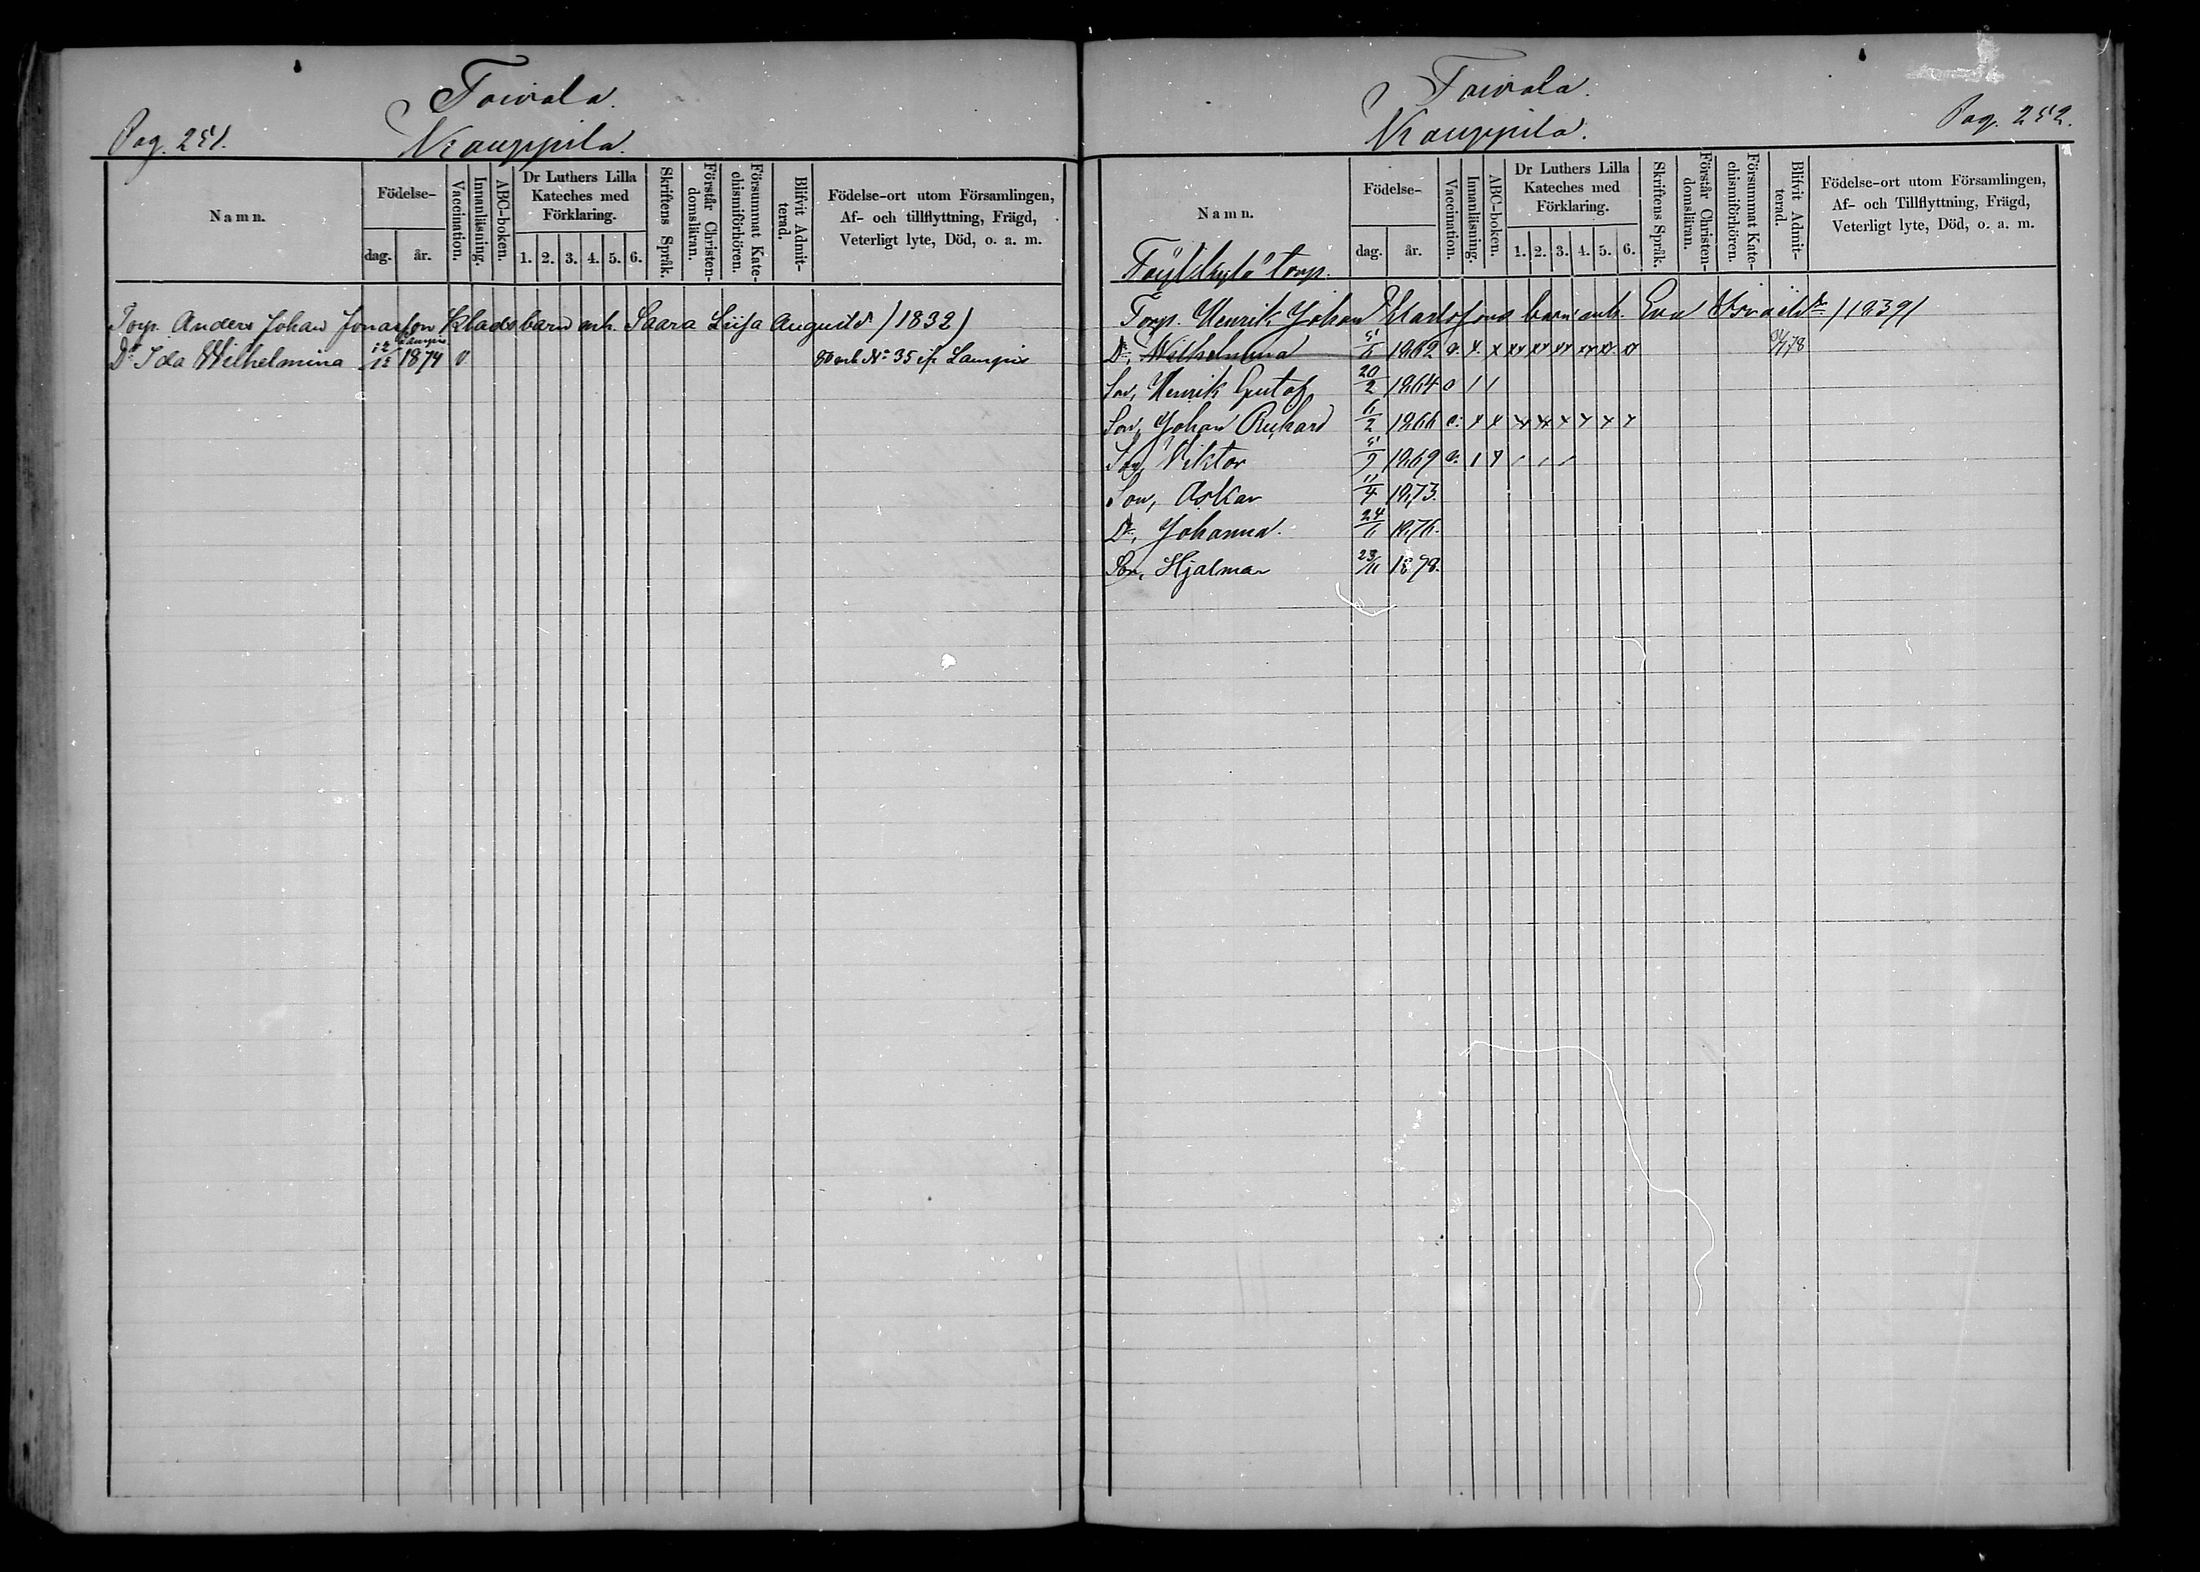 Pag. 251.
Toivola.
Kauppila.
Namn.
Födelse-
dag.
år.
Vaccination.
Innanläsning.
ABC-boken.
Dr Luthers Lilla
Kateches med
Förklaring.
1. 2. 3. 4. 5. 6.
Skriftens Språk.
Förstår Christen-
domsläran.
Försummat Kate-
chismiförhören.
Blifvit Admit-
terad.
Födelse-ort utom Församlingen,
Af- och tillflyttning, Frägd,
Veterligt lyte, Död, o. a. m.
Torp. Anders Johan Jonasson Klads barn mh. Saara Liisa Augustd. /1832/
Dr Ida Wilhelmina 12/12 Lampis 1874 v 80 mb No 35 ifr. Lampis
Toivola.
Kauppila.
Pag. 252.
Namn.
Födelse-
dag.
år.
Vaccination.
Innanläsning.
ABC-boken.
Dr Luthers Lilla
Kateches med
Förklaring.
1. 2. 3. 4. 5. 6.
Skriftens Språk.
Förstår Christen-
domsläran.
Försummat Kate-
chismiförhören.
Blifvit Admit-
terad.
Födelse-ort utom Församlingen,
Af- och Tillflyttning, Frägd,
Veterligt lyte, Död, o. a. m.
torp.
Torp. Henrik Johan Karlssons barn mh. Eva Israelsdr /1839/
Dr, Wilhelmina 1862 v. x. x xx xx xx xx x. x
Son, Henrik Gustaf 20/2 1864 v / /
Son, Johan Rikhard 6/2 1866 v. x x x x x x x x
Son, Viktor 5/9 1869 v. / x / / /
Son, Oskar 11/4 1873.
Dr, Johanna. 24/6 1876.
Son, Hjalmar 23/11 1878.